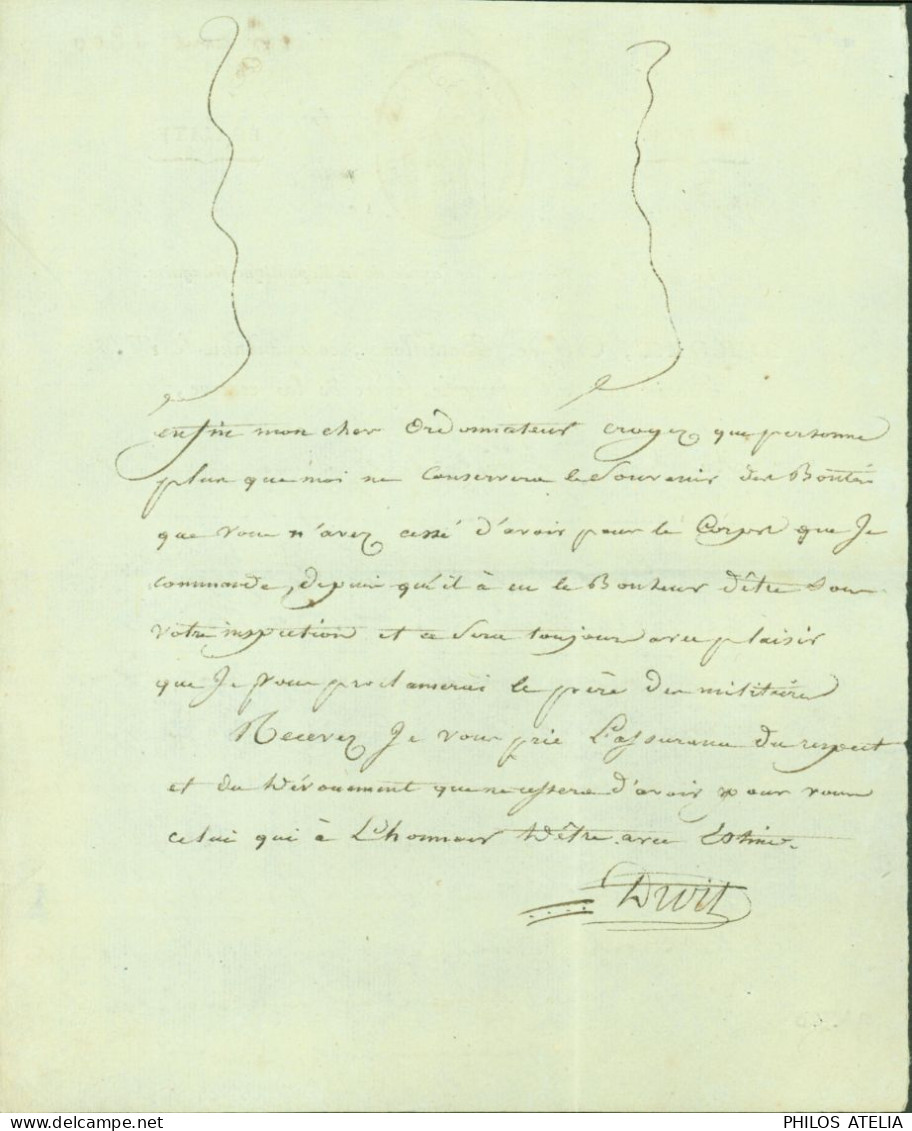 enfin mon cher Ordonnateur croyez que personne
plus que moi ne conservera le Souvenir des Bontés
que vous n'avez cessé d'avoir pour le Corps que Je
commande, depuis qu'il à eu le Bonheur d'être Sous
votre inspection et ce Sera toujours avec plaisir
que Je vous proclamerai le père des militaires
Recevez Je vous prie L'assurance du respect
et du dévouement que ne cessera d'avoir pour vous
celui qui à L'honneur d'être avec Estime.
PHILOS ATELIA